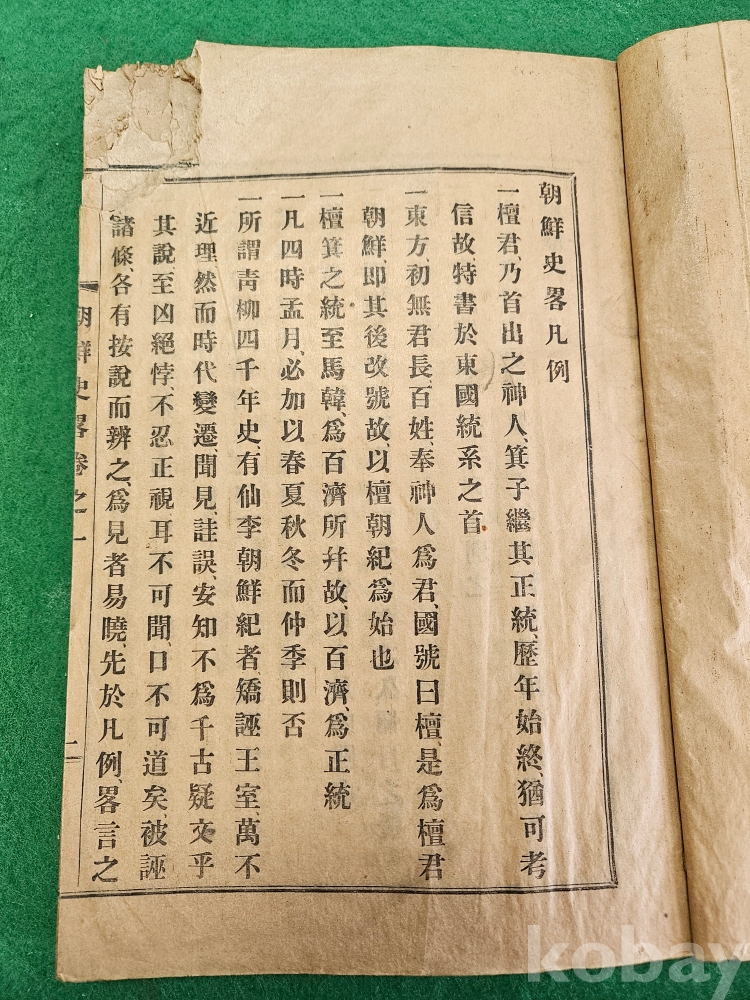 朝鮮史畧凡例
一檀君、乃首出之神人、箕子繼其正統、歷年始終、猶可考
信故特書於東國統系之首
一東方、初無君長、百姓、奉神人爲君、國號曰檀、是爲檀君
朝鮮卽其後改號故、以檀朝紀爲始也
一檀箕之統至馬韓、爲百濟所幷故、以百濟、爲正統
一凡四時孟月、必加以春夏秋冬而仲季則否
一所謂靑柳四千年史、有仙李朝鮮紀者、矯誣王室、萬不
近理然而時代變遷、聞見、註誤、安知不爲千古疑文乎
其說、至凶絕悖、不忍正視耳不可聞、口不可道矣、被誣
諸條、各有按說而辨之、爲見者易曉、先於凡例、畧言之
朝鮮史畧卷之一
二
kobay